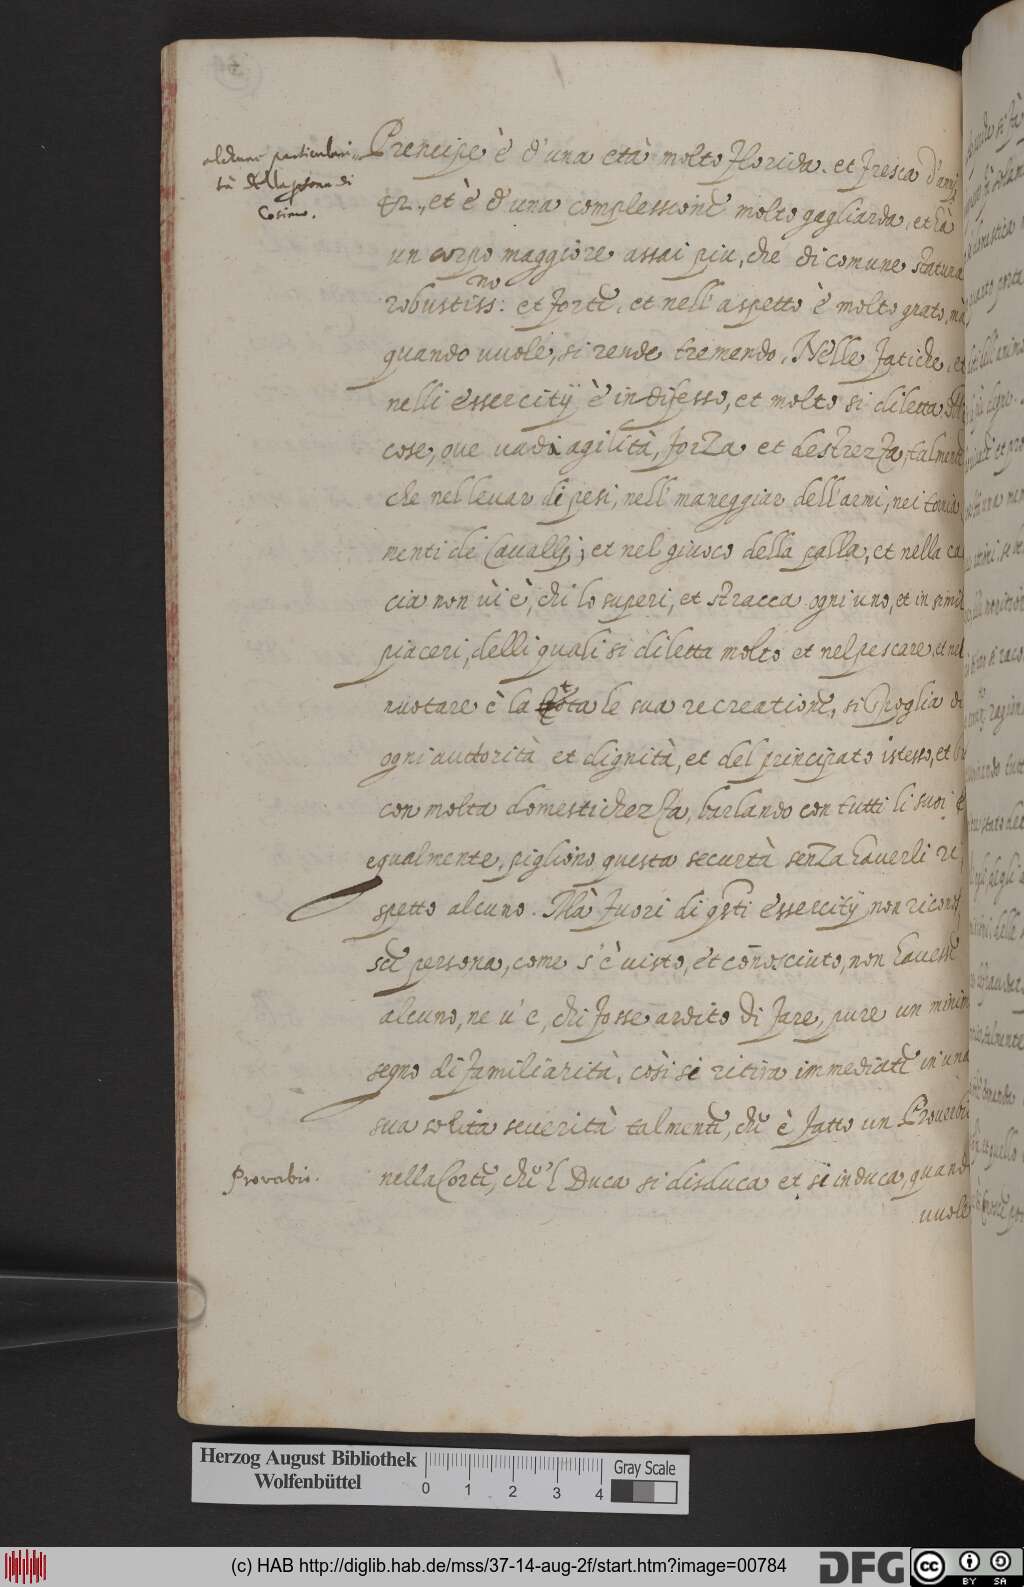 alchune particulari-
tà della persona di
Cosimo.
Prencipe è d'una età molto florida, et fresca d'anni
42., et è d'una complessione molto gagliarda, et hà
un corpo maggiore assai piu, che di comune statura
robustiss:no et forte, et nell'aspetto è molto grato, mà
quando uuole, si rende tremendo. Nelle fatiche, et
nelli essercitij è indefesso, et molto si diletta
cose, oue uadi agilità, forza et destrezza, talmente
che nel leuar di pesi, nell'maneggiar dell'armi, nei tornia
menti de Caualli, et nel giuoco della palla, et nella ca
cia non ui è, chi lo superi, et stracca ogni uno, et in simil
piaceri, delli quali si diletta molto et nel pescare, et nel
nuotare è la totale sua recreatione, si spoglia di
ogni auttorità et dignità, et del principato istesso, et
con molta domestichezza, burlando con tutti li suoi
egualmente, pigliono questa securtà senza hauerli ri
spetto alcuno. Mà fuori di questi essercitij non ricono
sce persona, come s'è uisto, et connosciuto, non hauesse
alcuno, ne u'è, chi fosse ardito di fare, pure un minim
segno di familiarità, così si ritira immediate in una
sua solita seuerità talmente, che è fatto un Prouerbio
Proverbio.
nella Corte, che'l Duca si disduca et si induca, quando
uuole
Herzog August Bibliothek
Wolfenbüttel
0 1 2 3 4
Gray Scale
(c) HAB http://diglib.hab.de/mss/37-14-aug-2f/start.htm?image=00784
DFG
cc BY SA